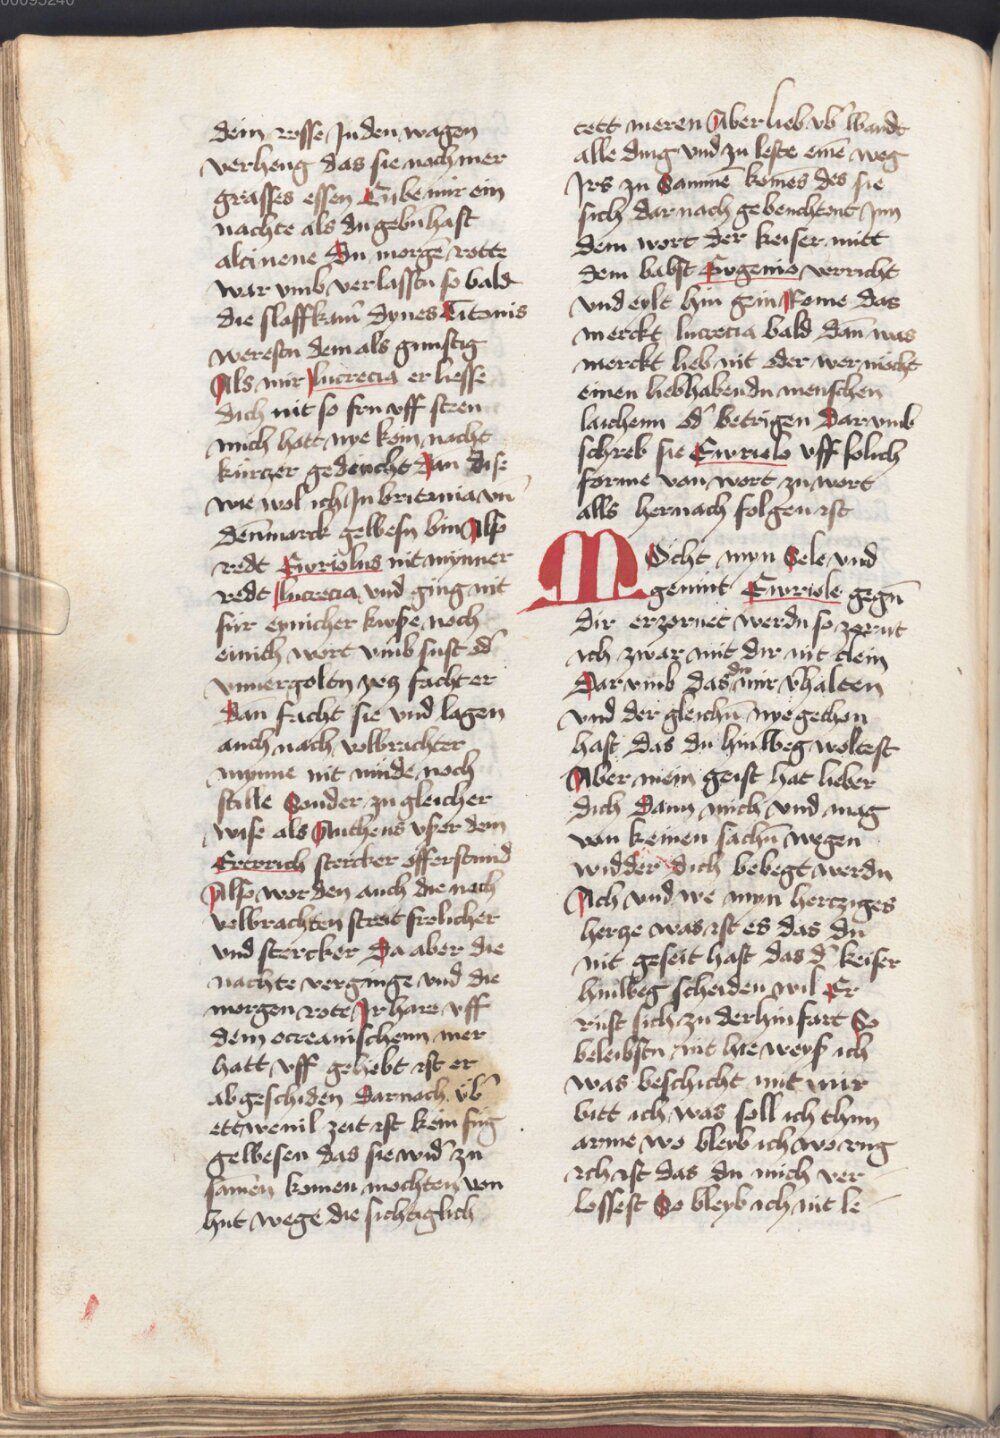 00095240
dein rosse Jn den wagen
verheng das sie noch mer
grasses essen Gibe mir ein
nachte als du gebn hast
alcinene Du morgē rotte
war vmb verlasstu so bald
die slaffkam̄ dynes Titonis
werestu dem als gunstig
Als mir lucrecia er liesse
dich nit so fru vff steen
mich hatt nye kein nacht
kurczer geducht Dan dise
wie wol ich Jn britania vn̄
den̄marck gewesn bin Also
redt Euriolus nit mynner
redt lucrecia vnd ging nit
fur eynicher kusse noch
einich wort vmb sust od̄
vnuergoltn yez facht er
Dan̄ facht sie vnd lagen
auch nach volbrachter
mynne nit minde noch
stille Sonder zu gleicher
wise als Antheus vßer dem
Ertrich stercker offerstund
Also worden auch die nach
volbrachten streit frolicher
vnd stercker Da aber die
nachte verginge vnd die
morgen rote Jr hare vff
dem occeanischenn mer
hatt vff gehebt ist er
abgeschiden Darnach vb̄
ettwenil zeit ist kein fug
gewesen das sie wid̄ zu
samēn komen mochten von
hut wege die sicheiglich
tett meren Aber lieb vb̄ wandt
alle ding vnd zu leste einē weg
Jrs zu Sammē komēs des sie
sich dar nach gebruchtent Jnn
dem wort der keiser mitt
dem babst Eugenio verricht
vnd eylt hin gein Rome das
merckt lucrecia bald dan̄ was
merckt lieb nit oder wer mocht
einen liebhabendn menschen
laichenn od̄ betrigen Darvmb
schreb sie Euriolo vff solich
forme von wort zu wort
alls hernach folgen ist
MOcht myn Sele vnd
gemüt Euriole gegn̄
dir erzornet werdn so zornt
ich zwar mit dir nit clein
Dar vmb das du mir v̄halten
vnd der gleichn̄ nye gethon
hast das du hinweg woltest
Aber mein geist hat lieber
dich Dann mich vnd mag
von keinen sachn̄ wegen
widder dich bebegt werdn
Ach vnd we myn hercziges
hercze was ist es das du
nit geseit hast das d̄ keiser
hinweg scheiden wil Er
rust sich zu der hin fart So
beleibstu nit hie weyß ich
was beschicht mit mir
bitt ich was soll ich thun
arme wo bleib ich wo rug
ich ist das du mich ver
lossest So bleyb ich nit le